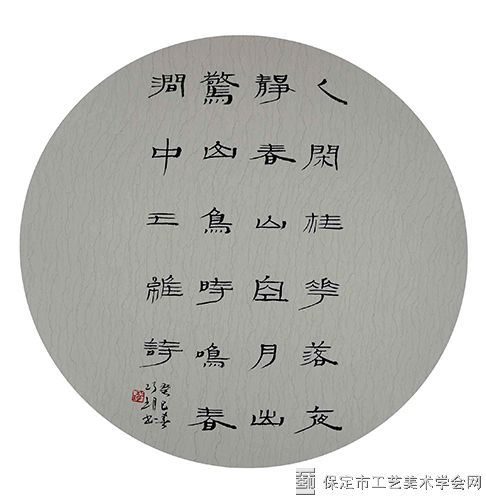 人閑桂花落夜
靜春山空月出
驚山鳥時鳴春
澗中王維詩
癸巳春
保定市工艺美术学会网